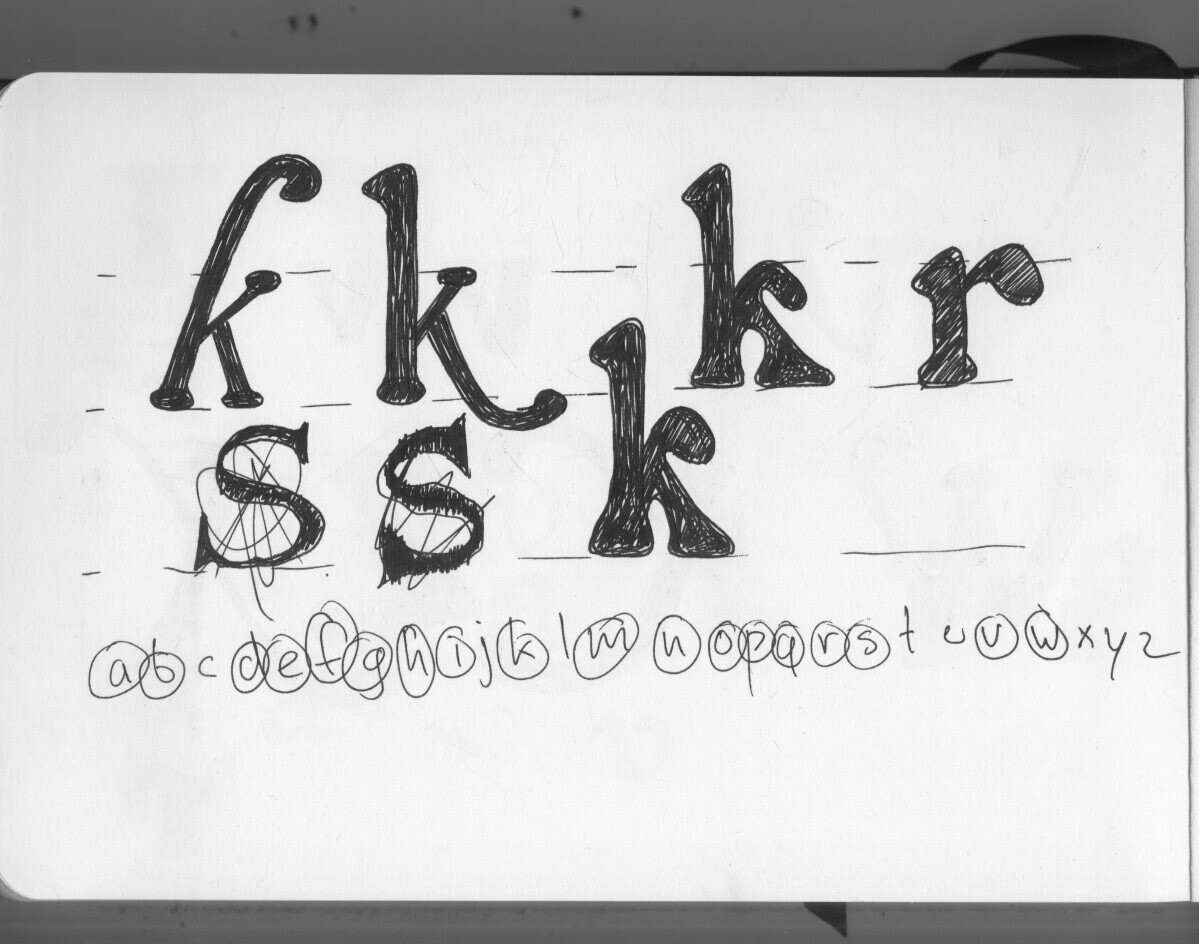 k k k r
s s k
a b c d e f g h i j k l m n o p q r s t u v w x y z